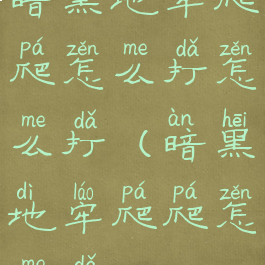 暗黑地牢爬
pá zěn me dǎ zěn
爬怎么打怎
me dǎ àn hēi
么打(暗黑
dì láo pá pá zěn
地牢爬爬怎
me dǎ